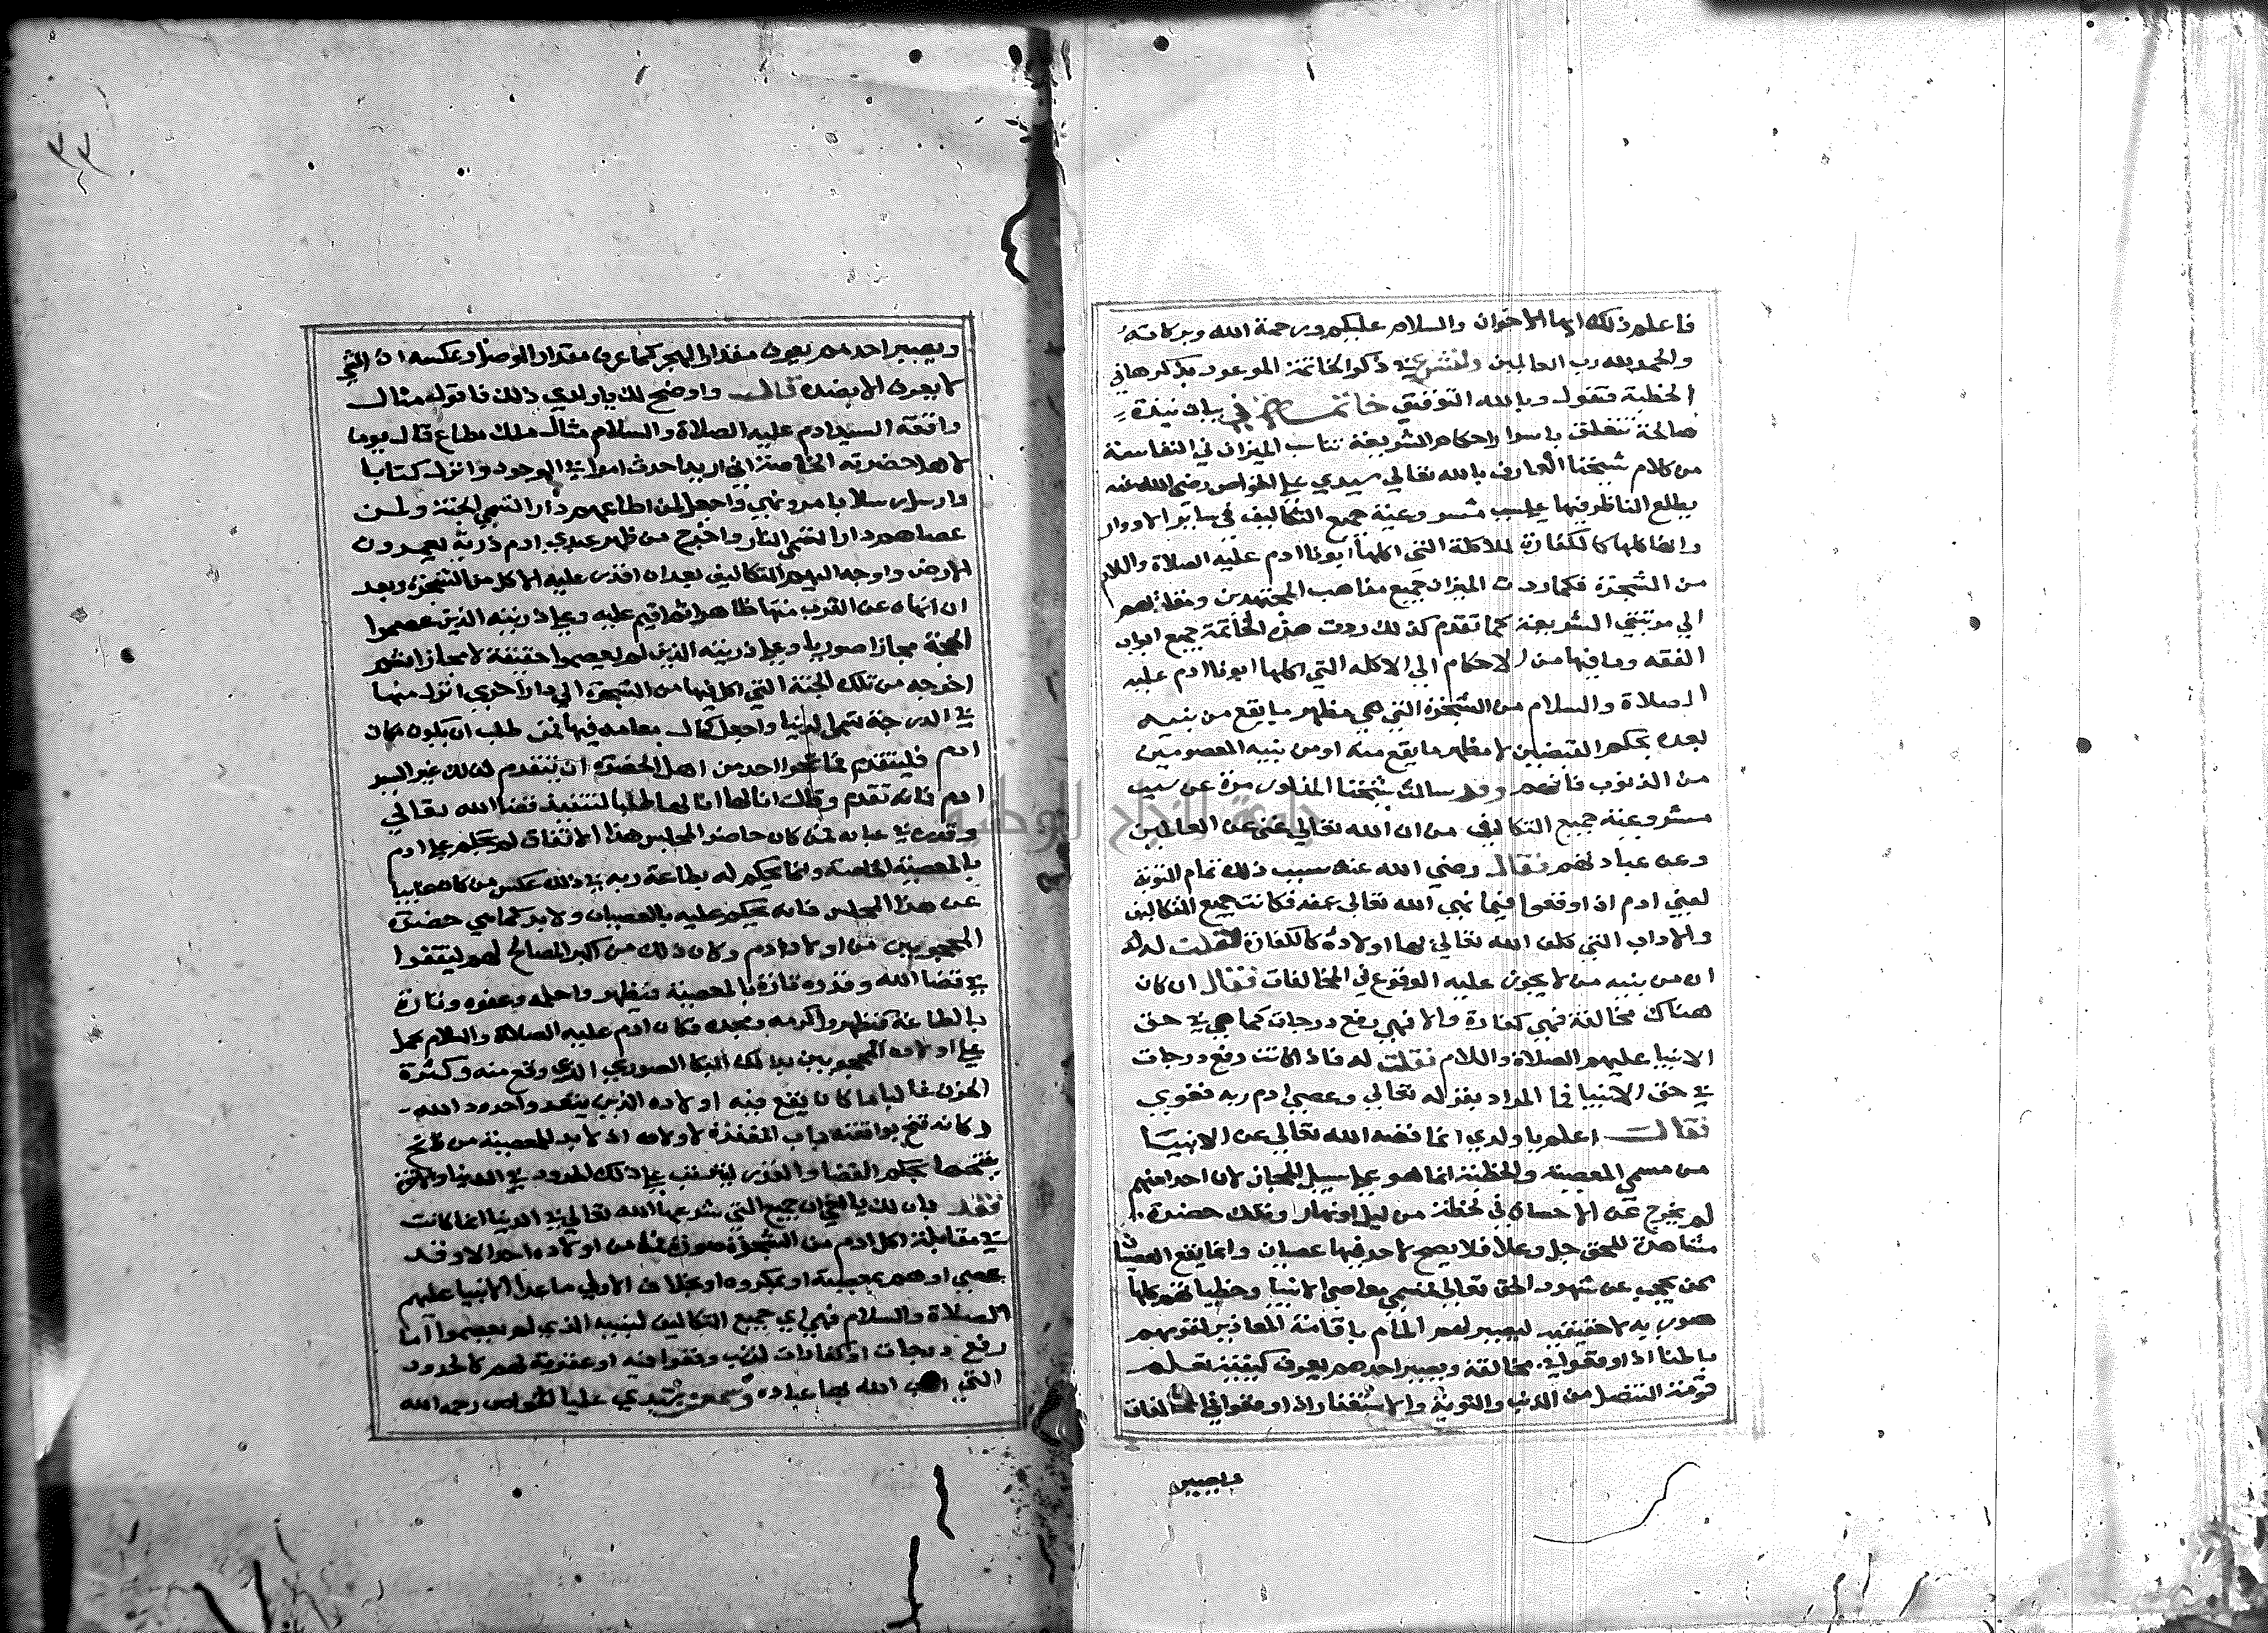 فاعلم ذلك ايها الاخوان والسلام عليكم ورحمة الله وبركاته
والحمد لله رب العالمين ولنشرع في ذكر الخاتمة الموعود بذكرها في
الخطبة فنقول وبالله التوفيق خاتمة في بيان نبذة
صالحة تتعلق باسرار احكام الشريعة تناسب الميزان في النفاسة
من كلام شيخنا العارف بالله تعالي سيدي علي الخواص رضي الله عنه
يطلع الناظر فيها علي سبب مشروعية جميع التكاليف في ساير الادوار
وانها كلها كالكفارة للاكلة التي اكلها ابونا ادم عليه الصلاة واللام
من الشجرة فكما ردت الميزان جميع مذاهب المجتهدين ومقلديهم
الي مرتبتي الشريعة كما تقدم كذلك ردت هذه الخاتمة جميع ابواب
الفقه وما فيها من الاحكام الي الاكله التي اكلها ابونا ادم عليه
الصلاة والسلام من الشجرة التي هي مظهر ما يقع من بنيه
بعده بحكم القبضتين لا مظهر ما يقع منه او من بنيه المعصومين
من الذنوب فافهم وقد سالت شيخنا المذكور مرة عن سبب
مشروعية جميع التكاليف من ان الله تعالي غني عن العالمين
وعن عبادتهم فقال رضي الله عنه سبب ذلك تمام التوبة
لبني ادم اذا وقعوا فيما نهي الله تعالي عنه فكانت جميع التكاليف
والاداب التي كلف الله تعالي بها اولاده كالكفارة فقلت له
ان من بنيه من لا يجوز عليه الوقوع في المخالفات فقال ان كان
هناك مخالفة فهي كفارة والا فهي رفع درجات كما هي في حق
الانبيا عليهم الصلاة واللام فقلت له فاذا كانت رفع درجات
في حق الانبيا فما المراد بقوله تعالي وعصي ادم ربه فغوي
فقال اعلم يا ولدي انما قصه الله تعالي عن الانبيا
من مسمي المعصية والخطية انما هو علي سبيل المجاز لان احدا منهم
لم يخرج عن الاحسان في لحظة من ليل او نهار وتلك حضرة
مشاهدة للحق جل وعلا فلا يصح لاحد فيها عصيان وانما يقع العصيان
ممن يحجب عن شهود الحق تعالي فمسمي معاصي الانبيا وخطياتهم كلها
صورية لا حقيقية ليصير لهم المام باقامة المعاذير لقومهم
باطنا اذا وقعوا في مخالفة ويصير احدهم يعرف كيفية تعليم
قومه التنصل من الذنب والتوبة والاستغفار اذا وقعوا في المخالفات
ويصير
ويصير احدهم يعرف مقدار الهجر كما عرف مقدار الوصل وعكسه اذ الشي
لا يعرف الا بضده قال واوضح لك يا ولدي ذلك فاقول مثال
واقعة السيد ادم عليه الصلاة والسلام مثال ملك مطاع قال يوما
لاهل حضرته الخاصة اني اريد احدث امرا في الوجود وانزل كتابا
وارسل رسلا بامر ونهي واجعل لمن اطاعهم دارا تسمي الجنة ولمن
عصاهم دارا تسمي النار واخرج من ظهر عبدي ادم ذرية يعمرون
الارض واوجه اليهم التكاليف بعد ان اقدر عليه الاكل من الشجرة وبعد
ان انهاه عن القرب منها ظاهرا ثم اقيم عليه وعلي ذريته الذين عصموا
الحجة مجازا صوريا وعلي ذريته الذين لم يعصموا حقيقة لا مجازا ثم
اخرجه من تلك الجنة التي اكل فيها من الشجرة الي دار اخري انزل منها
في الدرجة تسمي الدنيا واجعل كمال مقامه فيها فمن طلب ان يكون مكان
ادم فليتقدم فما تجرا احد من اهل الحضرة ان يتقدم لذلك غير السيد
ادم فانه تقدم وقال انا لها انا لها طلبا لتنفيذ قضا الله تعالي
وقدره في عباده فمن كان حاضر المجلس هذا الاتفاق لم يحكم علي ادم
بالمعصية الخاصة وانما يحكم له بطاعة ربه في ذلك عكس من كان غايبا
عن هذا المجلس فانه يحكم عليه بالعصيان ولا بد كما هي حضرة
المحجوبين من اولاد ادم وكان ذلك من اكبر المصالح لهم ليتفقوا
في قضا الله وقدره تارة بالمعصية فيظهر واحلمه وعفوه وتارة
بالطاعة فيظهر واكرمه ومجده فكان ادم عليه الصلاة والسلام يحمل
علي اولاده المحجوبين بذلك البكا الصوري الذي وقع منه وكثرة
الحزن غالبا لما كان يقع فيه اولاده الذين يتعدوا حدود الله
وكانه فتح بواقعته باب المغفرة لاولاده اذ لا بد للمعصية من فاتح
يفتحها بحكم القضا والقدر ليترتب علي ذلك الحدود في الدنيا والاخرة
فقد بان لك يا اخي ان جميع التي شرعها الله تعالي في الدنيا انما كانت
في مقابلة اكل ادم من الشجرة صورة فما من اولاده احد الا وقد
عصي اوهم بمعصية او بمكروه او بخلاف الاولي ما عدا الانبيا عليهم
الصلاة والسلام فهي اي جميع التكاليف لبنيه الذي لم يعصموا اما
رفع درجات او كفارات لذنب وقعوا فيه او عقوبة لهم كالحدود
التي الله بها عباده وسمعت سيدي عليا الخواص رحمه الله